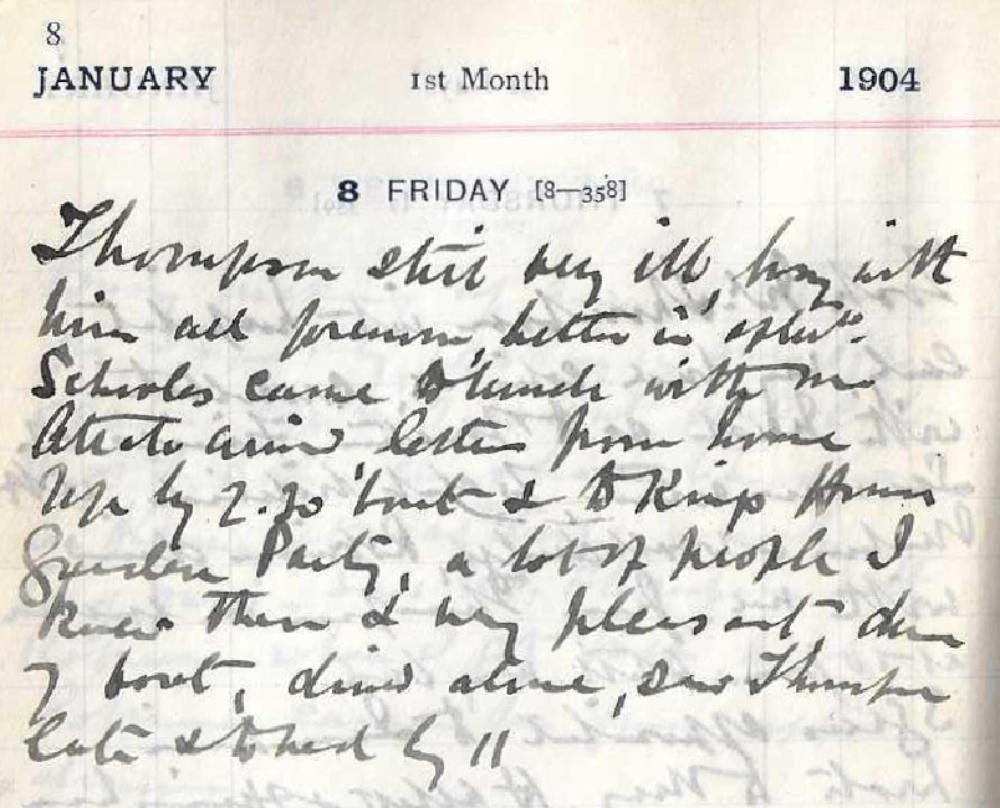 8
JANUARY 1st Month 1904
8 FRIDAY [8—358]
Thompson still very ill, busy with
him all forenoon, better in aftn.
Scholes came to lunch with me
Atrato arrived letters from home
Up by 2.30 boat & to Kings House
Garden Party, a lot of people I
knew there & very pleasant, down
7 boat, dined alone, saw Thompson
late & to bed by 11